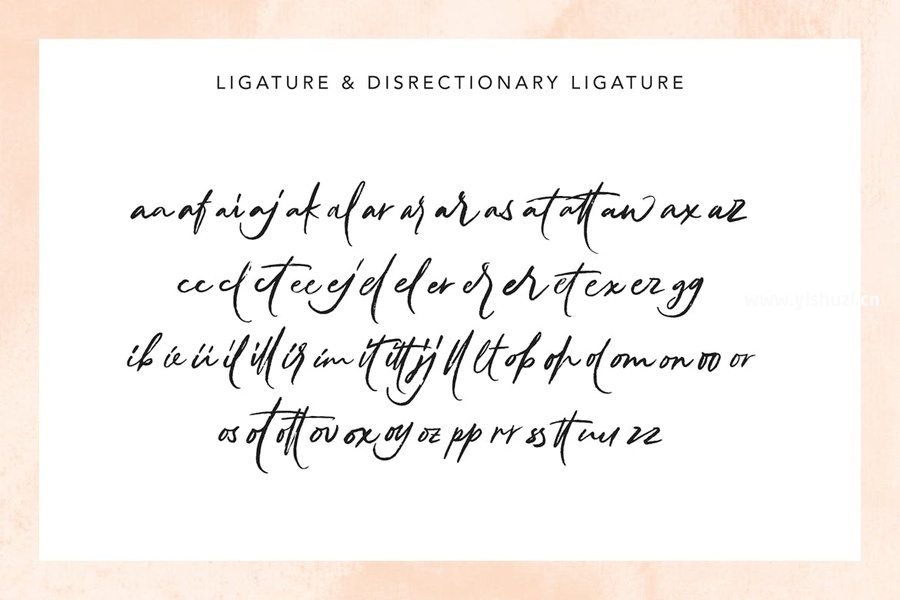 LIGATURE & DISRECTIONARY LIGATURE
aa af ai aj ak al ar as at att aw ax az
cc cl ct ee ej el er et ex ez gg
ib ie ii il ill ir im it itt jj ll lt ob op ol om on oo or
os ot ott ov ox oy oz pp rr ss tt uu zz
www.yishuzi.cn